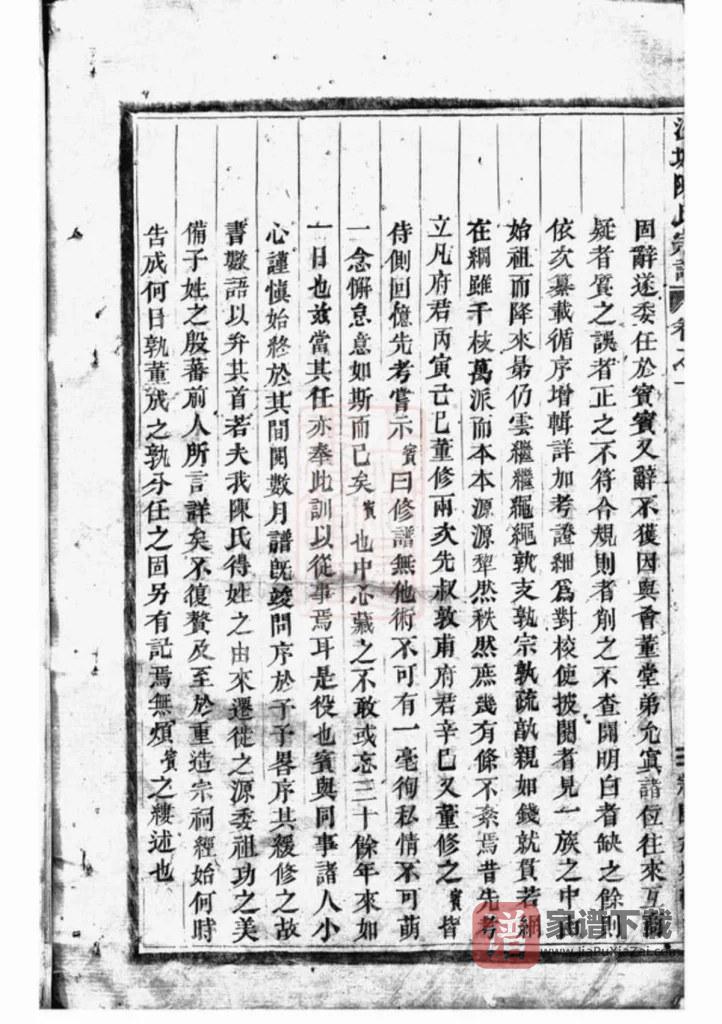 陳氏宗譜 卷之一
固辭遂委任於賓賓又辭不獲因與會董堂弟允寅諸位往來互商
疑者質之誤者正之不符合規則者削之不查開明白者缺之餘則
依次纂載循序增輯詳加考證細爲對校使披閱者見一族之中由
始祖而降來昴仍雲繼繼繩繩孰支孰宗孰疏孰親如錢就貫若網
在綱雖千枝萬派而本本源源犁然秩然庶幾有條不紊焉昔先考
立凡府君丙寅己巳董修兩次先叔敦甫府君辛巳又董修之賓皆
侍側回憶先考嘗示賓曰修譜無他術不可有一毫徇私情不可萌
一念懈怠意如斯而已矣賓也中心藏之不敢或忘三十餘年來如
一日也兹當其任亦奉此訓以從事焉耳是役也賓與同事諸人小
心謹慎始終於其間閱數月譜既竣問序於予予畧序其緩修之故
書數語以弁其首若夫我陳氏得姓之由來遷徙之源委祖功之美
備子姓之殷蕃前人所言詳矣不復贅及至於重造宗祠經始何時
告成何日孰董成之孰分任之固另有記焉無煩賓之縷述也
譜
家谱下载
www.JiaPuXiaZai.com